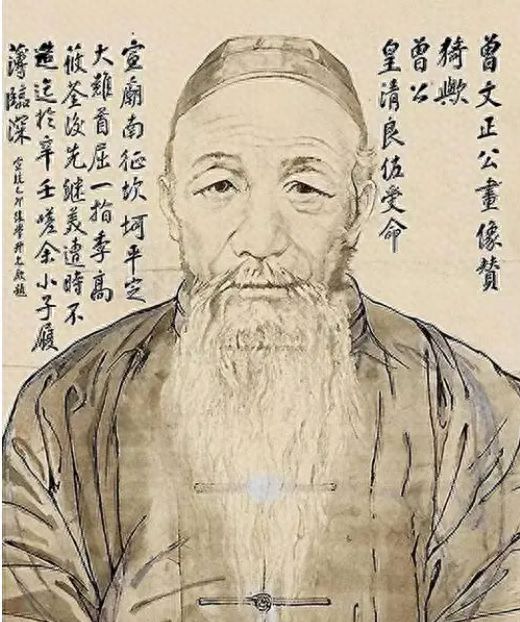 曾文正公畫像贊
猗歟
曾公
皇清良佐受命
宣廟南征坎坷平定
大難首屈一指季高
筱荃後先继美遭時不
造迄於辛壬嗟余小子履
薄臨深
宣統乙卯張